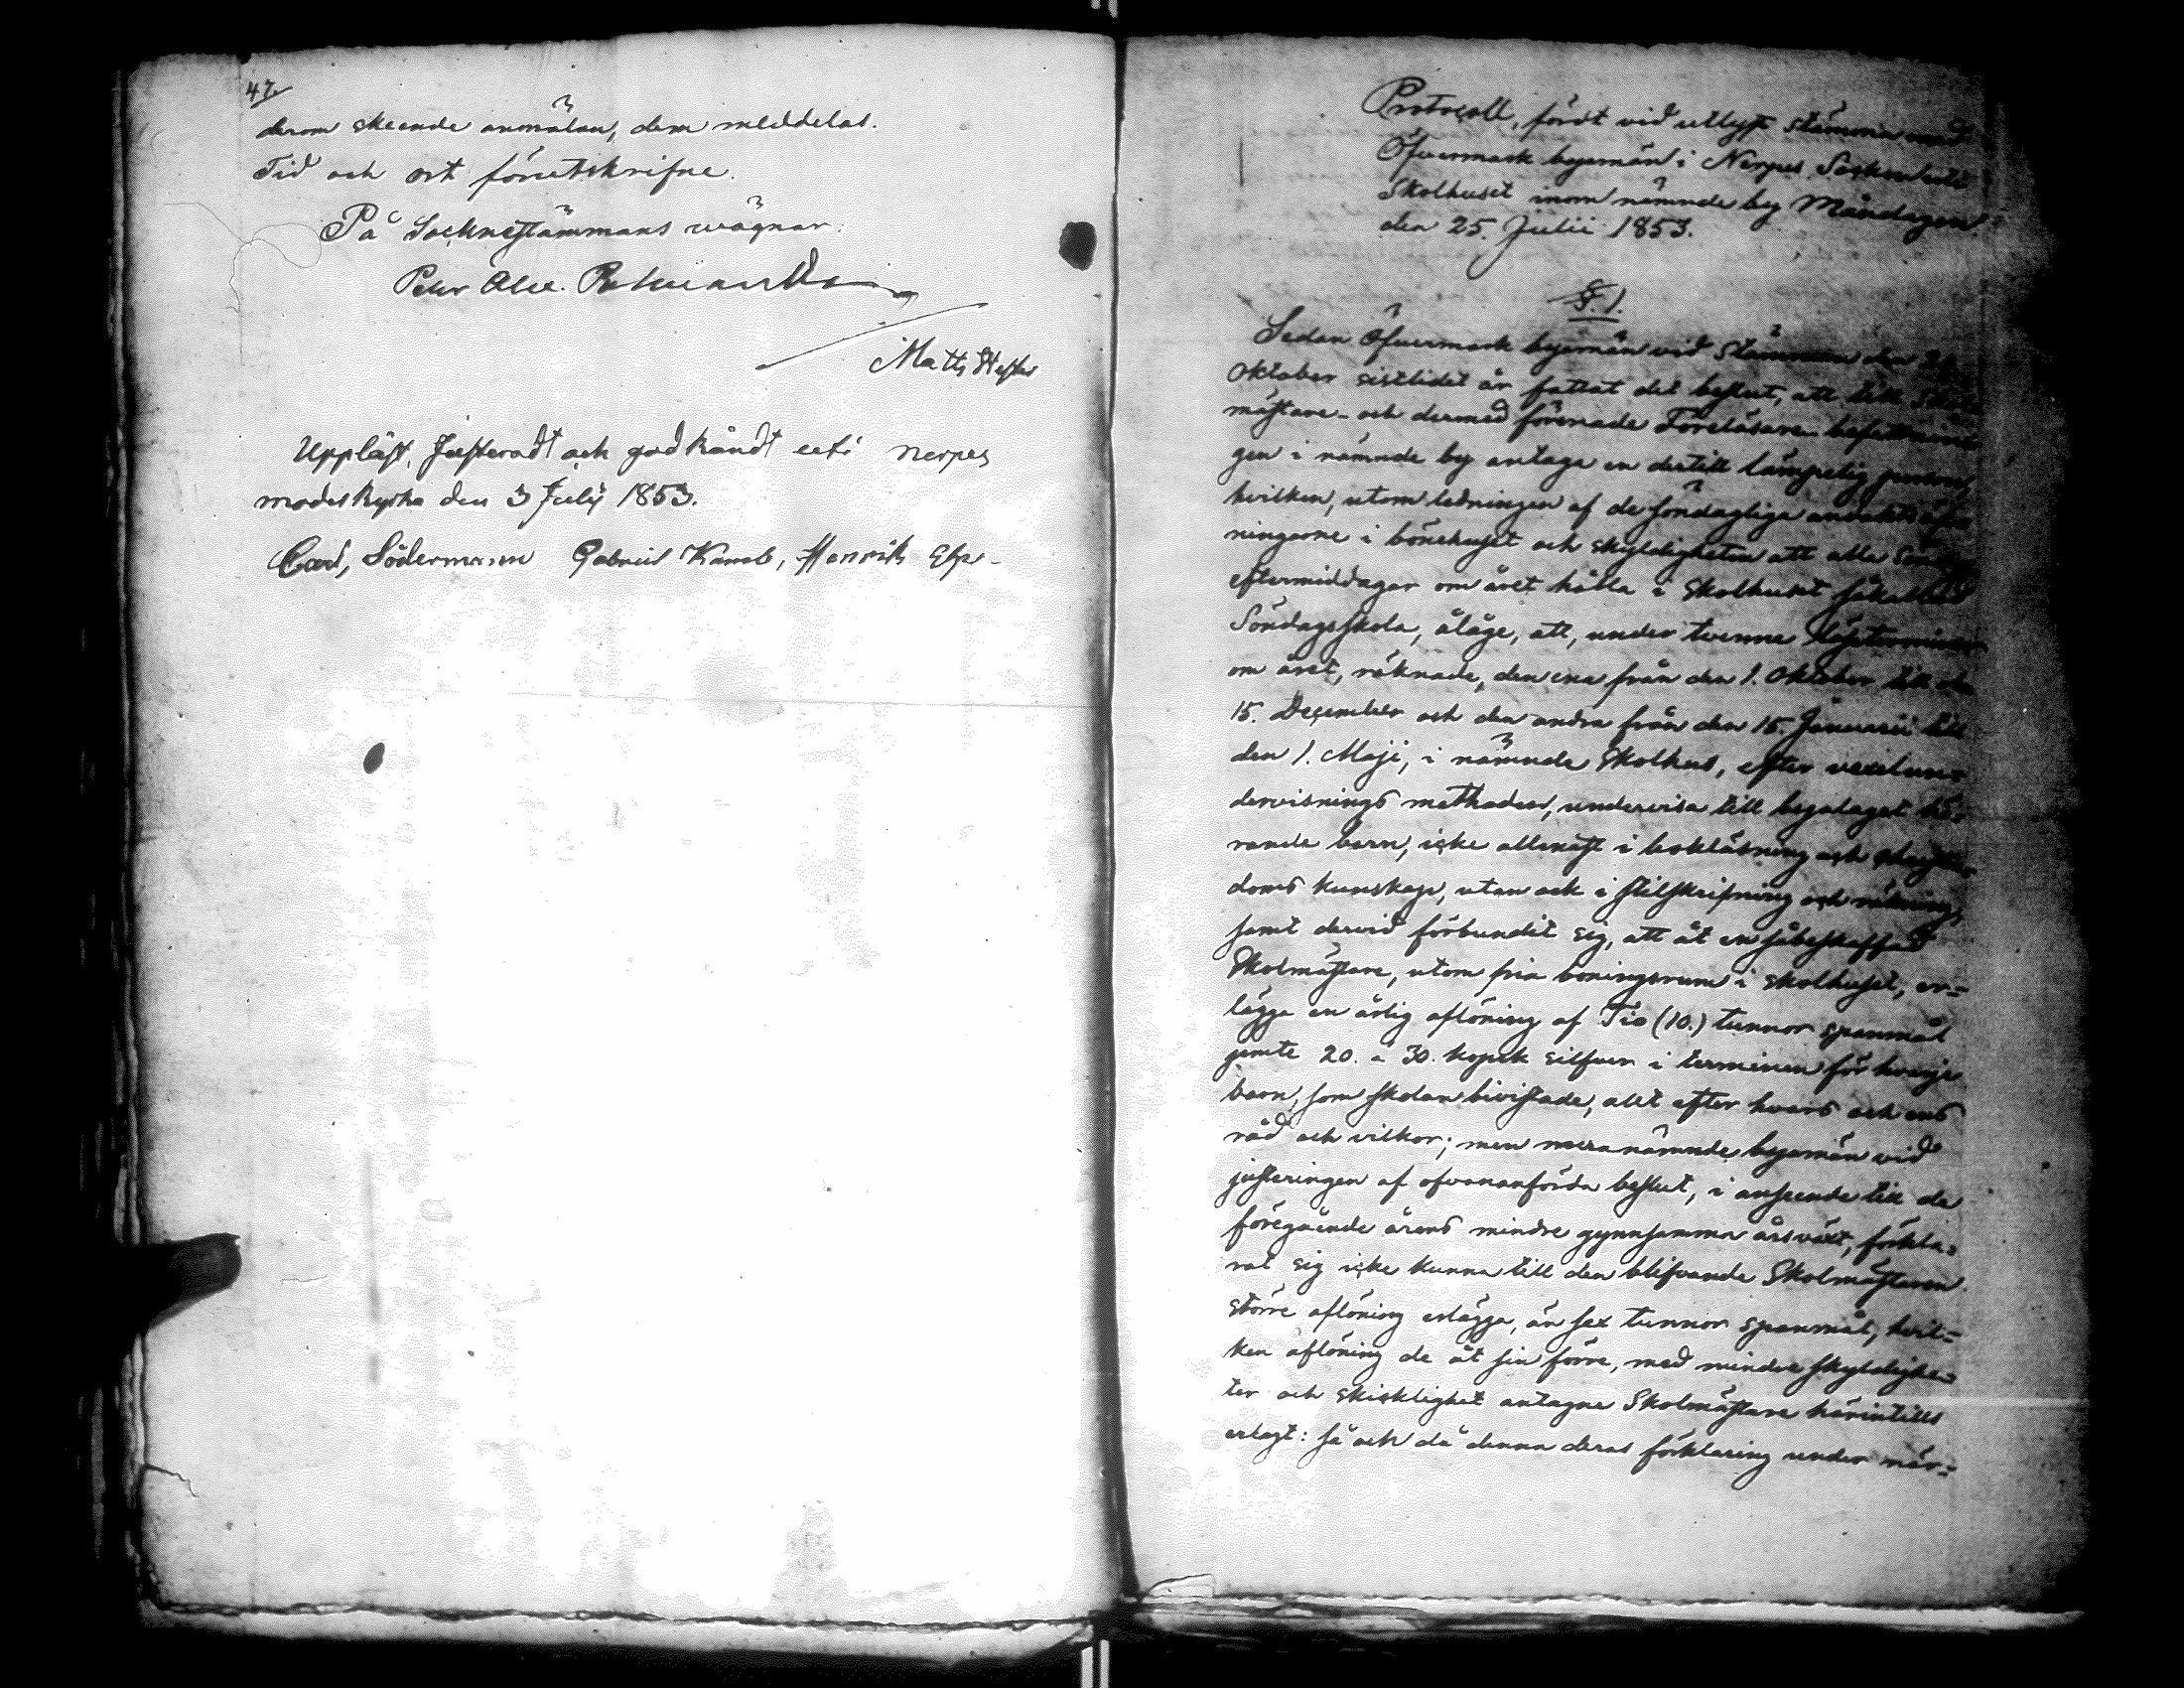 47.
derom skeende anmälan, dem meddelas.
Tid och ort förutskrifne.
På Socknestämmans wägnar:
Matts
Uppläst, Justeradt och godkändt uti Nerpes
moderkyrka den 3 July 1853.
Carl, Södermann Gabriel Henrik
Protocoll, fördt vid utlyst stämma med
Öfvermark byamän i Nerpes Socken uti
Skolhuset inom nämnde by Måndagen
den 25. Julii 1853.
§. 1.
Sedan Öfvermark byamän vid Stämman den
Oktober sistlidet år fattat det beslut, att till Skol-
mästare- och dermed förenade Föreläsare-befattnin-
gen i nämnde by antaga en dertill lämpelig person,
hvilken, utom ledningen af de söndagliga andaktsöf-
ningarne i bönehuset och skyldigheten att alla Söndags
eftermiddagar om året hålla i Skolhuset såkallad
Söndagsskola, ålåge, att, under tvenne läseterminer
om året, räknade, den ena från den 1. Oktober till den
15. December och den andra från den 15. Januarii till
den 1. Maji, i nämnde Skolhus, efter vexelun-
dervisnings methoden, undervisa till byalaget hö-
rande barn, icke allenast i bokläsning och christen-
doms kunskap, utan ock i stilskrifning och räkning,
samt dervid förbundit sig, att åt en såbeskaffad
Skolmästare, utom fria boningsrum i skolhuset, er=
lägga en årlig aflöning af Tio (10.) tunnor spanmål
jemte 20. à 30. kopek silfver i terminen för hvarje
barn, som skolan bivistade, allt efter hvars och ens
råd och vilkor; men meranämnde byamän vid
justeringen af ofvananförda beslut, i anseende till de
föregående årens mindre gynnsamma årsväxt, förkla-
rat sig icke kunna till den blifvande Skolmästaren
större aflöning erlägga, än sex tunnor spanmål, hvil=
ken aflöning de åt sin förre, med mindre skyldighe-
ter och skicklighet antagne Skolmästare härintills
erlagt: så och då denna deras förklaring under när=